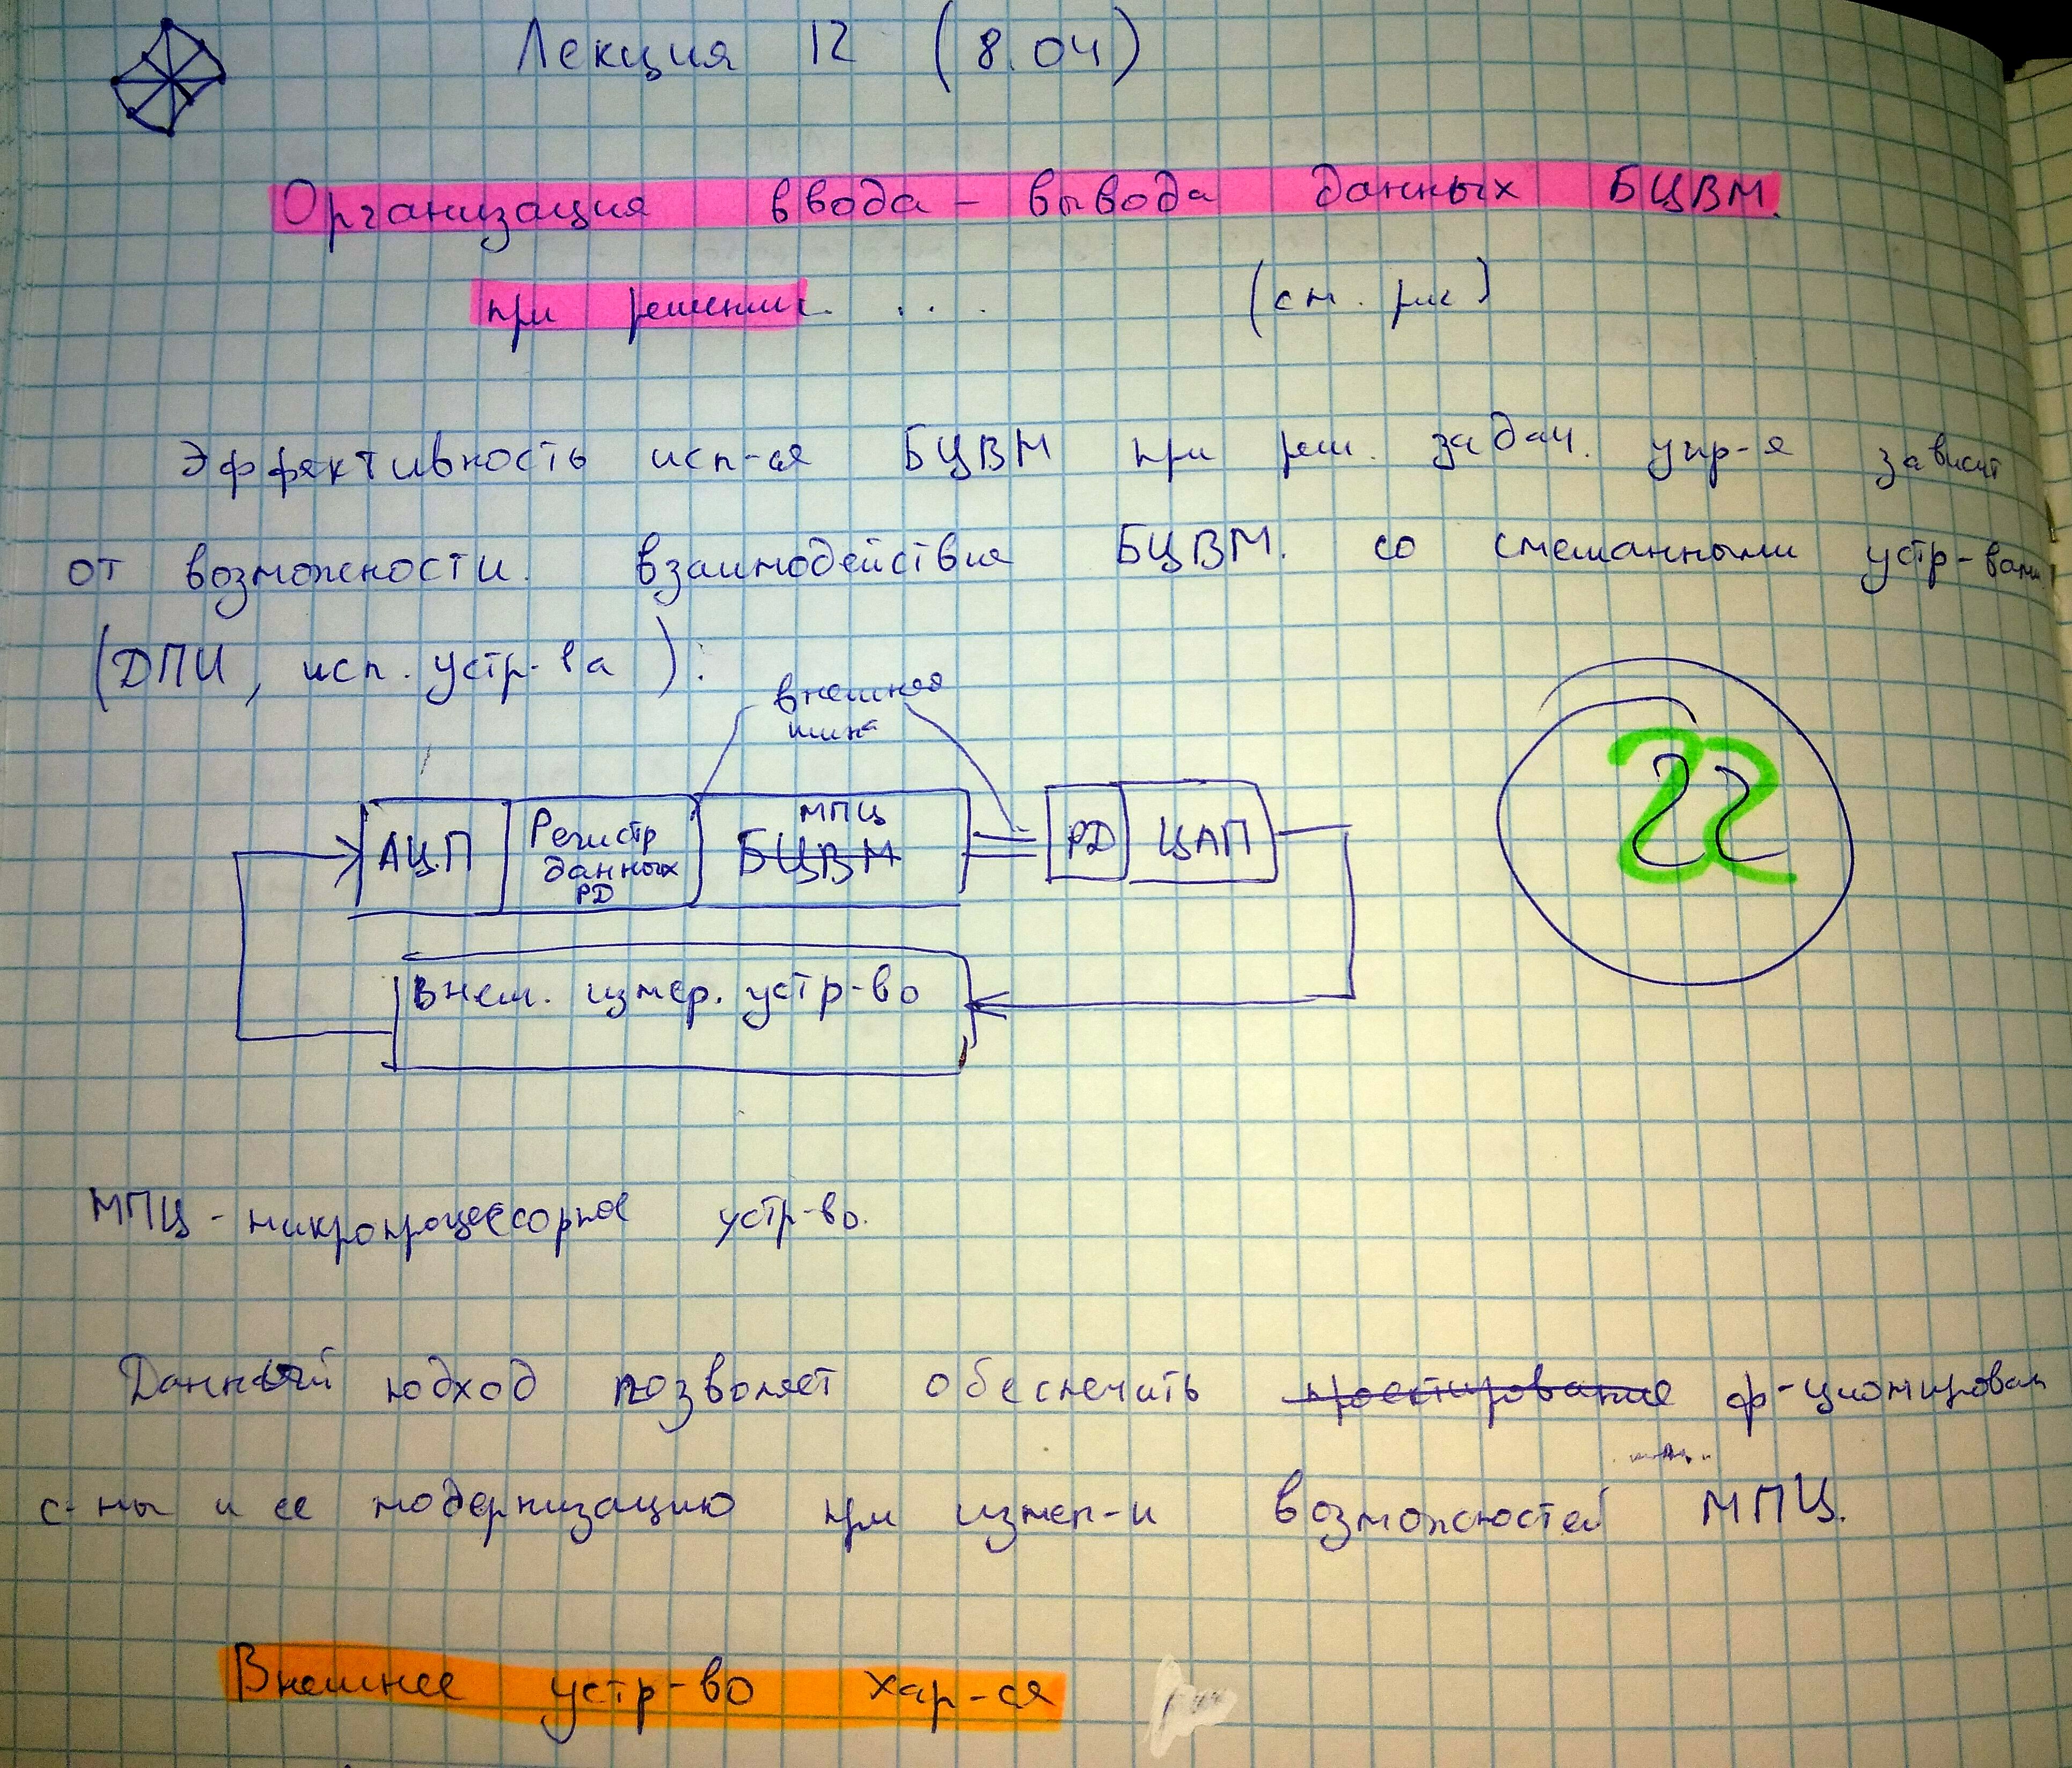 Лекция 12 (8.04)
Организация ввода-вывода данных БЦВМ.
при решении. ... (см. рис)
Эффективность исп-ся БЦВМ при реш. задач. упр-я зависит
от возможности. взаимодействия БЦВМ. со смешанными устр-вами
(ДПИ, исп. устр-ва):
внешняя
шина
АЦП
Регистр
данных
РД
МПЦ
БЦВМ
РД
ЦАП
22
Внеш. измер. устр-во
МПЦ - микропроцессорное устр-во.
Данный подход позволяет обеспечить проектирование ф-ционирован
с-мы и ее модернизацию при измен-и возможностей МПЦ.
Внешнее устр-во хар-ся